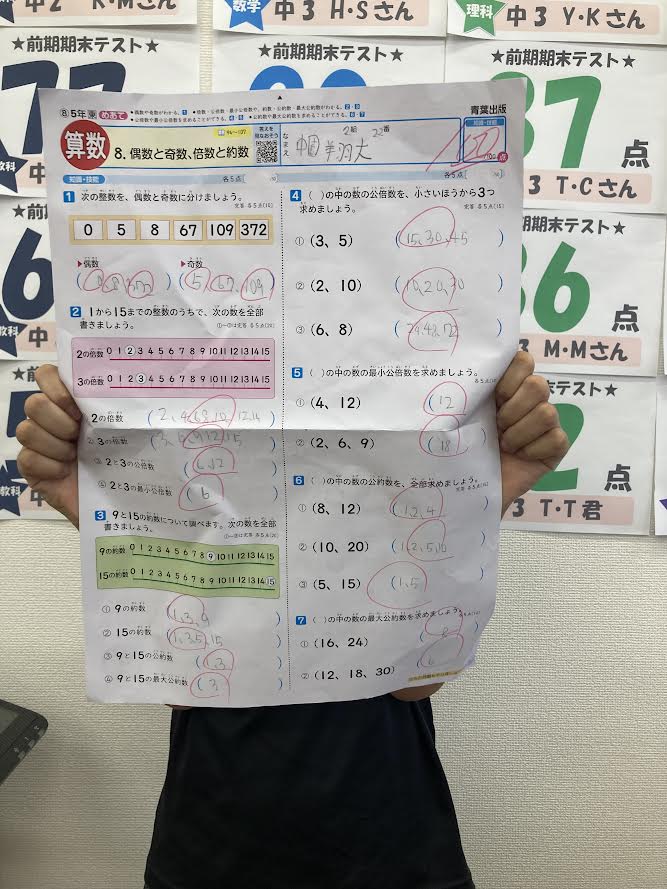 中2 K・Mさん
数学 中3 H・Sさん
理科 中3 Y・Kさん
★前期期末テスト★
★前期期末テスト★
★前期期末テスト★
77
87点
中3 T・Cさん
6
86点
3 M・Mさん
末テスト★
2点
3 T・T君
⑧5年 めあて
青葉出版
算数
8. 偶数と奇数、倍数と約数
96〜107
答えを見なおそう
なまえ
2組 22番
知識・技能
100
点
知識・技能 各5点
各5点
1 次の整数を、偶数と奇数に分けましょう。
完答 各5点(10)
0 5 8 67 109 372
▶偶数 ▶奇数
(0, 8, 372) (5, 67, 109)
2 1から15までの整数のうちで、次の数を全部
書きましょう。
2の倍数 0 1 2 3 4 5 6 7 8 9 10 11 12 13 14 15
3の倍数 0 1 2 3 4 5 6 7 8 9 10 11 12 13 14 15
① 2の倍数 (2, 4, 6, 8, 10, 12, 14)
② 3の倍数 (3, 6, 9, 12, 15)
③ 2と3の公倍数 (6, 12)
④ 2と3の最小公倍数 (6)
3 9と15の約数について調べます。次の数を全部
書きましょう。
9の約数 0 1 2 3 4 5 6 7 8 9 10 11 12 13 14 15
15の約数 0 1 2 3 4 5 6 7 8 9 10 11 12 13 14 15
① 9の約数 (1, 3, 9)
② 15の約数 (1, 3, 5, 15)
③ 9と15の公約数 (1, 3)
④ 9と15の最大公約数 (3)
4 ( )の中の数の公倍数を、小さいほうから3つ
求めましょう。
完答 各5点(15)
① (3、5) (15, 30, 45)
② (2、10) (10, 20, 30)
③ (6、8) (24, 48, 72)
5 ( )の中の数の最小公倍数を求めましょう。
各5点(10)
① (4、12) (12)
② (2、6、9) (18)
6 ( )の中の数の公約数を、全部求めましょう。
完答 各5点(15)
① (8、12) (1, 2, 4)
② (10、20) (1, 2, 5, 10)
③ (5、15) (1, 5)
7 ( )の中の数の最大公約数を求めましょう。
各5点(10)
① (16、24) (8)
② (12、18、30) (6)